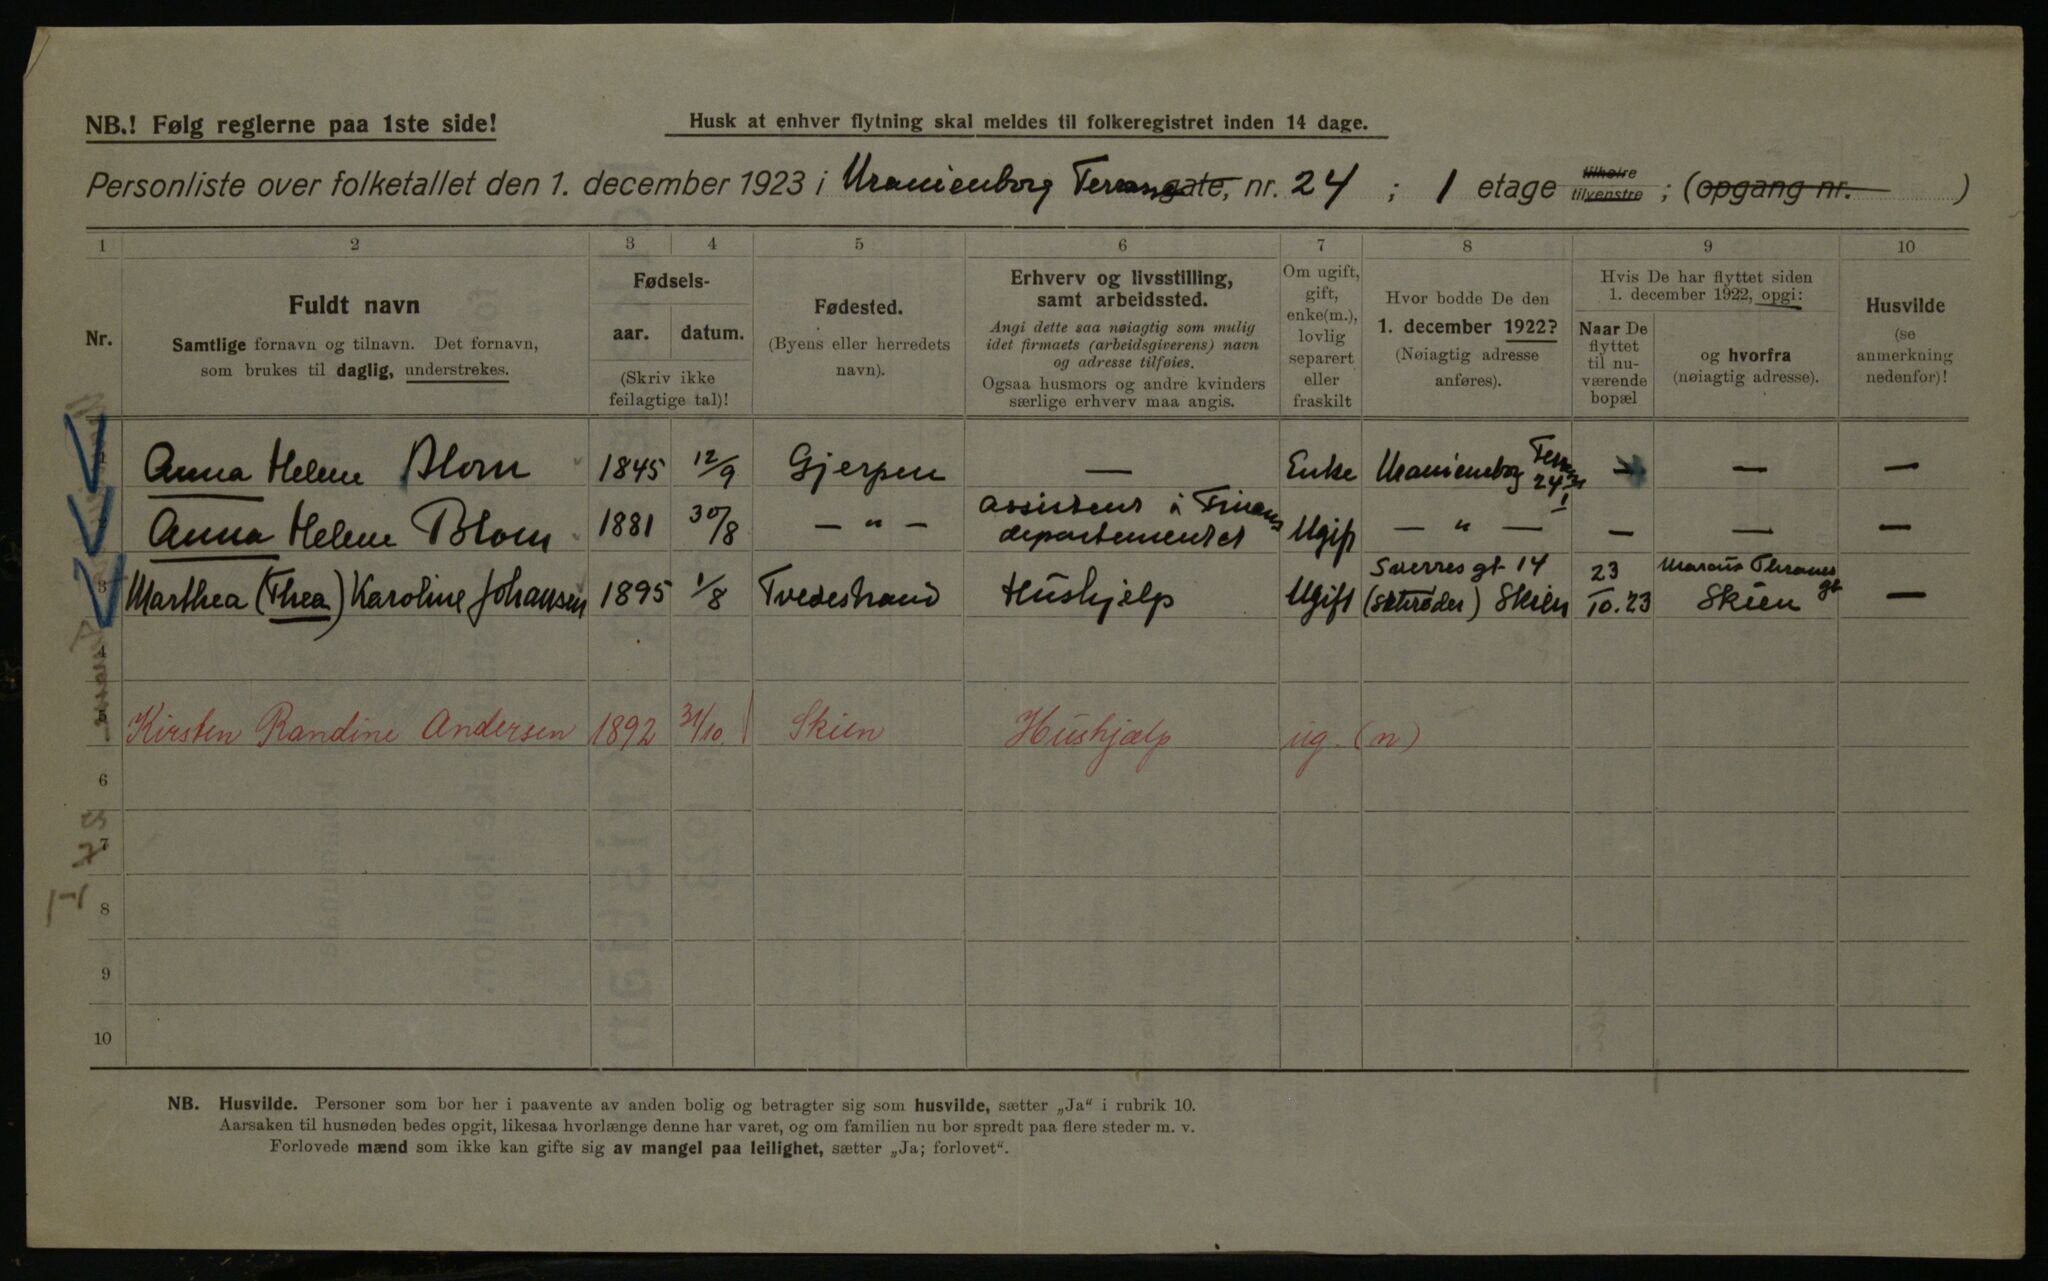 NB.! Følg reglerne paa 1ste side!
Husk at enhver flytning skal meldes til folkeregistret inden 14 dage.
Personliste over folketallet den 1. december 1923 i Uranienborg Terrasse gate, nr. 24 ; 1 etage tilhøire tilvenstre ; (opgang nr. )
1 2 3 4 5 6 7 8 9 10
Nr.
Fuldt navn
Samtlige fornavn og tilnavn. Det fornavn,
som brukes til daglig, understrekes.
Fødsels-
aar. datum.
(Skriv ikke
feilagtige tal)!
Fødested.
(Byens eller herredets
navn).
Erhverv og livsstilling,
samt arbeidssted.
Angi dette saa nøiagtig som mulig
idet firmaets (arbeidsgiverens) navn
og adresse tilføies.
Ogsaa husmors og andre kvinders
særlige erhverv maa angis.
Om ugift,
gift,
enke(m.),
lovlig
separert
eller
fraskilt
Hvor bodde De den
1. december 1922?
(Nøiagtig adresse
anføres).
Hvis De har flyttet siden
1. december 1922, opgi:
Naar De
flyttet
til nu-
værende
bopæl
og hvorfra
(nøiagtig adresse).
Husvilde
(se
anmerkning
nedenfor)!
Anna Helene Blom 1845 12/9 Gjerpen — Enke Uranienborg Terrasse 24 I — — —
Anna Helene Blom 1881 30/8 — " — assistent i Finans departementet Ugift — " — — — —
3 Marthea (Thea) Karoline Johansen 1895 1/8 Tvedestrand Hushjelp Ugift Sverres gt 14 (Schrøder) Skien 23/10.23 Marcus Thranes gt Skien —
4
5 Kirsten Randine Andersen 1892 31/10. Skien Hushjælp ug. (n)
6
7
8
9
10
NB. Husvilde. Personer som bor her i paavente av anden bolig og betragter sig som husvilde, sætter „Ja“ i rubrik 10.
Aarsaken til husnøden bedes opgit, likesaa hvorlænge denne har varet, og om familien nu bor spredt paa flere steder m. v.
Forlovede mænd som ikke kan gifte sig av mangel paa leilighet, sætter „Ja; forlovet“.